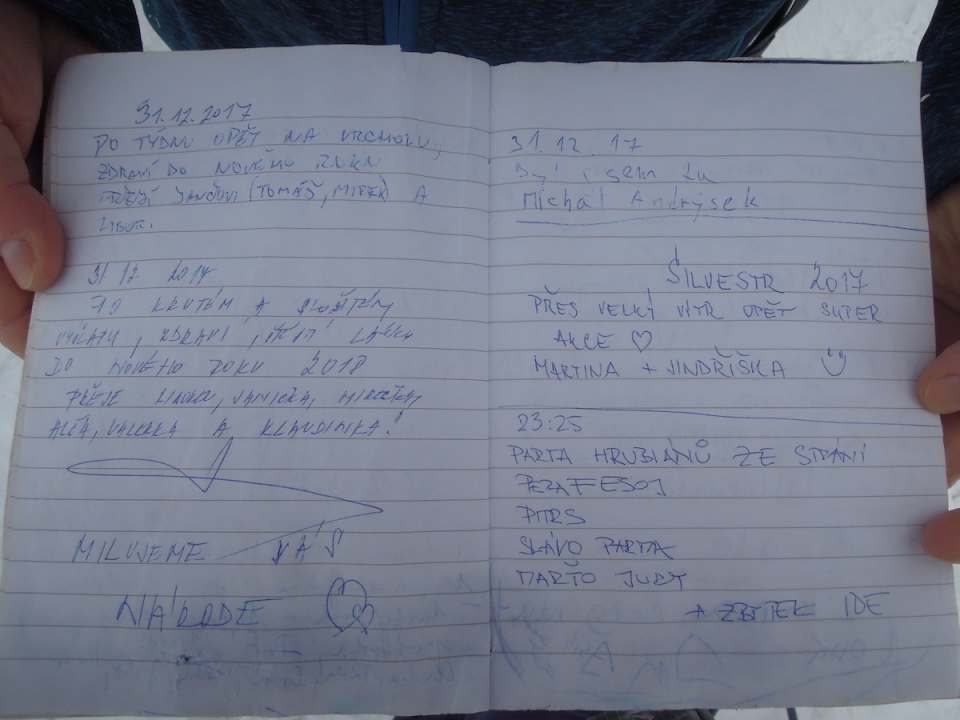 31.12.2017
PO TÝDNU OPĚT NA VRCHOLU,
ZDRAVÍ DO NOVÉHO ROKU
JANČOVI (TOMÁŠ, MIREK) A
LIBOR.
31.12. 2017
PO KRUTÉM A
VÝŠLAPU, ZDRAVÍ, ŠTĚSTÍ LÁSKU
DO NOVÉHO ROKU 2018
PŘEJE VANIČKA,
A KLAUDINKA!
MILUJEME VÁS
NÁRODE
31.12.17
Byl i sem tu
Michal Andrýsek
SILVESTR 2017
PŘES VELKÝ VÍTR OPĚT SUPER
AKCE ♡
MARTINA + JINDŘIŠKA
23:25
PARTA HRUBIÁNŮ ZE STRÁNÍ
PEZA FESOJ
PITRS
SLÁVO PARTA
MARŤO JURY
+ ZBITEK IDE